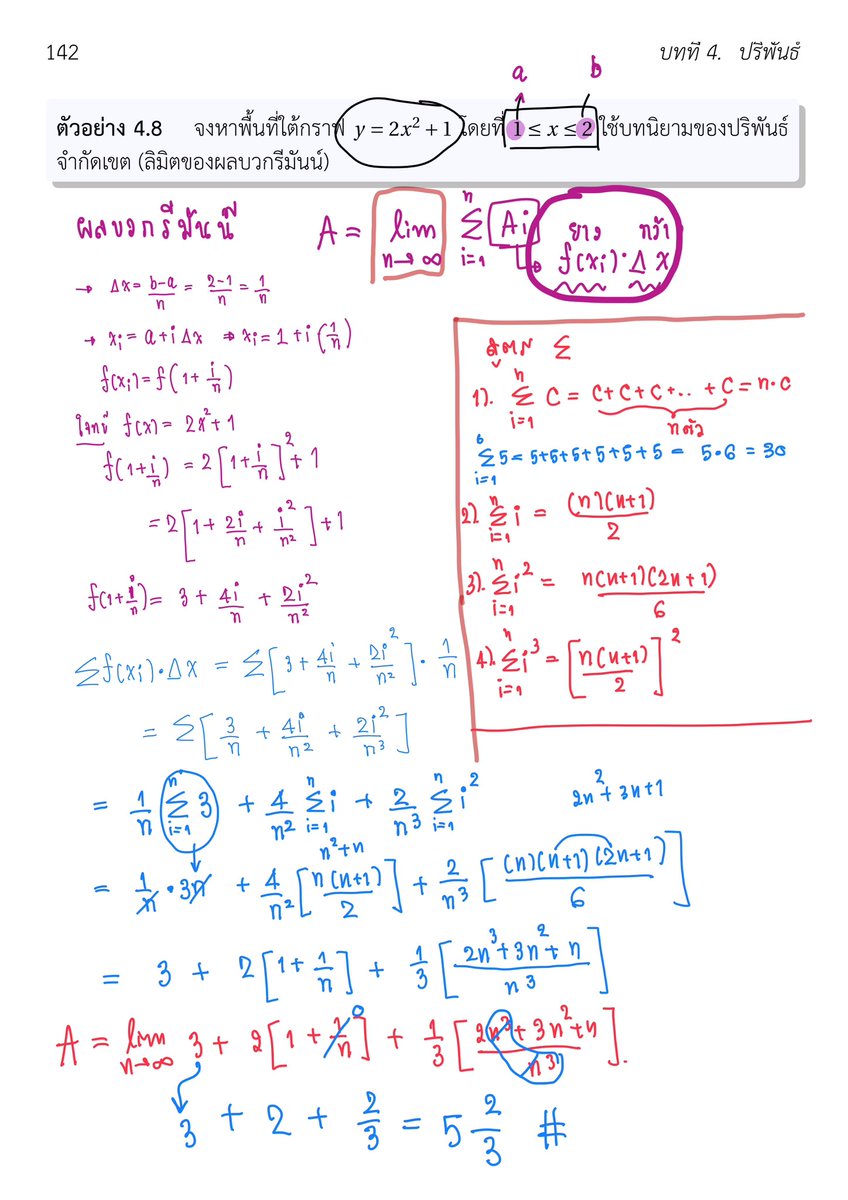 142 บทที่ 4. ปริพันธ์
a b
ตัวอย่าง 4.8 จงหาพื้นที่ใต้กราฟ y = 2x² + 1 โดยที่ 1 ≤ x ≤ 2 ใช้บทนิยามของปริพันธ์
จำกัดเขต (ลิมิตของผลบวกรีมันน์)
ผลบวกรีมันน์ A = lim n→∞ Σ i=1 n Ai
ยาว กว้า
f(xi)·Δx
→ Δx = b-a/n = 2-1/n = 1/n
→ xi = a + iΔx ⇒ xi = 1 + i(1/n)
f(xi) = f(1 + i/n)
โจทย์ f(x) = 2x² + 1
f(1+i/n) = 2[1+i/n]² + 1
= 2[1 + 2i/n + i²/n²] + 1
f(1+i/n) = 3 + 4i/n + 2i²/n²
สูตร Σ
1). Σ i=1 n C = C+C+C+.. +C = n·C
n ตัว
Σ i=1 6 5 = 5+5+5+5+5+5 = 5·6 = 30
2). Σ i=1 n i = (n)(n+1)/2
3). Σ i=1 n i² = n(n+1)(2n+1)/6
4). Σ i=1 n i³ = [n(n+1)/2]²
Σf(xi)·Δx = Σ[3 + 4i/n + 2i²/n²]·1/n
= Σ[3/n + 4i/n² + 2i²/n³]
= 1/n Σ i=1 n 3 + 4/n² Σ i=1 n i + 2/n³ Σ i=1 n i²
2n² + 3n + 1
n²+n
= 1/n · 3n + 4/n² [n(n+1)/2] + 2/n³ [(n)(n+1)(2n+1)/6]
= 3 + 2[1 + 1/n] + 1/3 [2n³+3n²+n/n³]
A = lim n→∞ 3 + 2[1 + 1/n] + 1/3 [2n³+3n²+n/n³].
0
3 + 2 + 2/3 = 5 2/3 #